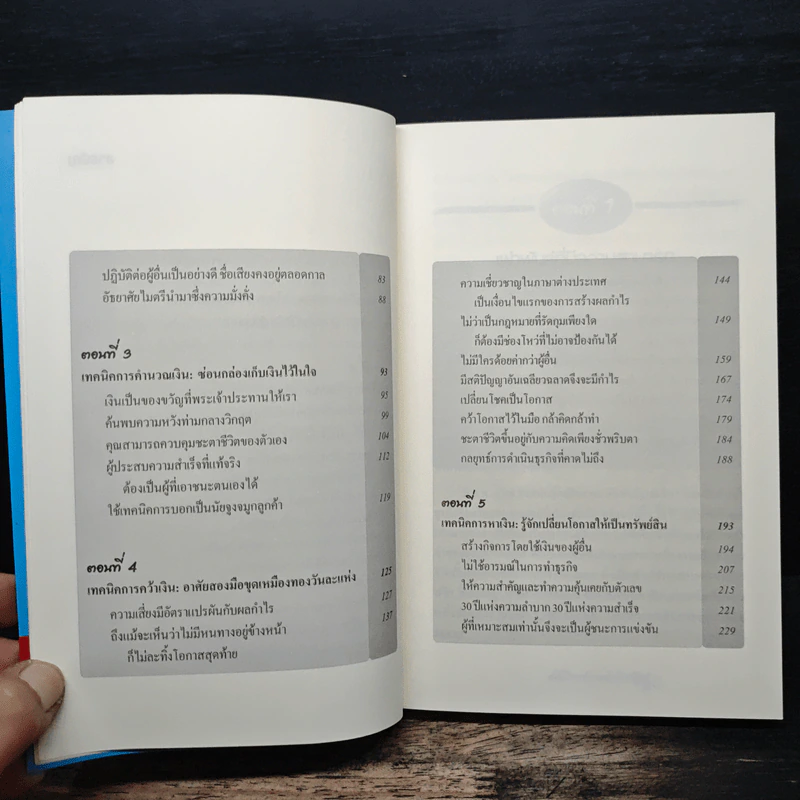 ปฏิบัติต่อผู้อื่นเป็นอย่างดี ชื่อเสียงคงอยู่ตลอดกาล 83
อัธยาศัยไมตรีนำมาซึ่งความมั่งคั่ง 88
ตอนที่ 3
เทคนิคการคำนวณเงิน: ซ่อนกล่องเก็บเงินไว้ในใจ 93
เงินเป็นของขวัญที่พระเจ้าประทานให้เรา 95
ค้นพบความหวังท่ามกลางวิกฤต 99
คุณสามารถควบคุมชะตาชีวิตของตัวเอง 104
ผู้ประสบความสำเร็จที่แท้จริง 112
ต้องเป็นผู้ที่เอาชนะตนเองได้
ใช้เทคนิคการบอกเป็นนัยจูงจมูกลูกค้า 119
ตอนที่ 4
เทคนิคการคว้าเงิน: อาศัยสองมือขุดเหมืองทองวันละแห่ง 125
ความเสี่ยงมีอัตราแปรผันกับผลกำไร 127
ถึงแม้จะเห็นว่าไม่มีหนทางอยู่ข้างหน้า 137
ก็ไม่ละทิ้งโอกาสสุดท้าย
ความเชี่ยวชาญในภาษาต่างประเทศ 144
เป็นเงื่อนไขแรกของการสร้างผลกำไร
ไม่ว่าเป็นกฎหมายที่รัดกุมเพียงใด 149
ก็ต้องมีช่องโหว่ที่ไม่อาจป้องกันได้
ไม่มีใครด้อยค่ากว่าผู้อื่น 159
มีสติปัญญาอันเฉลียวฉลาดจึงจะมีกำไร 167
เปลี่ยนโชคเป็นโอกาส 174
คว้าโอกาสไว้ในมือ กล้าคิดกล้าทำ 179
ชะตาชีวิตขึ้นอยู่กับความคิดเพียงชั่วพริบตา 184
กลยุทธ์การดำเนินธุรกิจที่คาดไม่ถึง 188
ตอนที่ 5
เทคนิคการหาเงิน: รู้จักเปลี่ยนโอกาสให้เป็นทรัพย์สิน 193
สร้างกิจการโดยใช้เงินของผู้อื่น 194
ไม่ใช้อารมณ์ในการทำธุรกิจ 207
ให้ความสำคัญและทำความคุ้นเคยกับตัวเลข 215
30 ปีแห่งความลำบาก 30 ปีแห่งความสำเร็จ 221
ผู้ที่เหมาะสมเท่านั้นจึงจะเป็นผู้ชนะการแข่งขัน 229